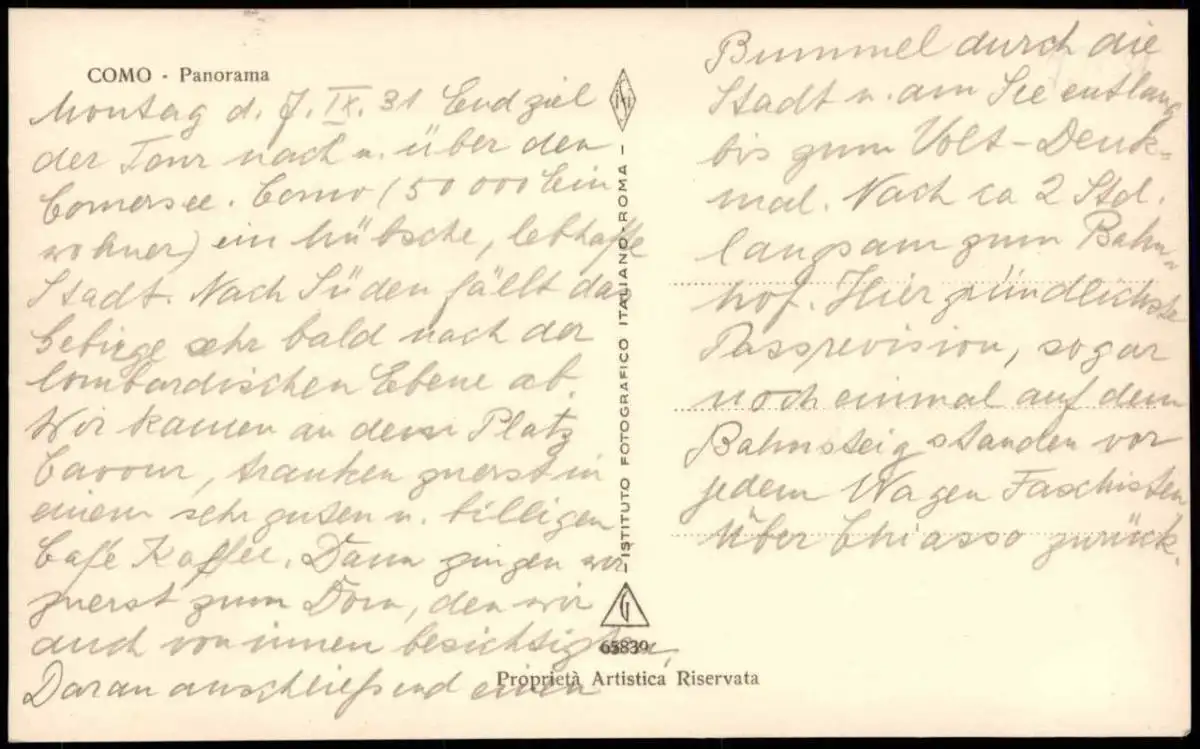 COMO - Panorama
Montag d. 7. IX. 31 Endziel
der Tour nach u. über den
Comersee. Como (50 000 Ein
wohner) ein hübsche, lebhafte
Stadt. Nach Süden fällt das
Gebirge sehr bald nach der
lombardischen Ebene ab.
Wir kamen an dem Platz
Cavour, tranken zuerst in
einem sehr guten u. billigen
Café Kaffee. Dann gingen wir
zuerst zum Dom, den wir
auch von innen besichtigten,
Daran anschließend einen
ISTITUTO FOTOGRAFICO ITALIANO - ROMA -
65839
Proprietà Artistica Riservata
Bummel durch die
Stadt u. am See entlang
bis zum Volt-Denk-
mal. Nach ca 2 Std.
langsam zum Bahn-
hof. Hier gründlichste
Passrevision, sogar
noch einmal auf dem
Bahnsteig standen vor
jedem Wagen Faschisten
Über Chiasso zurück.